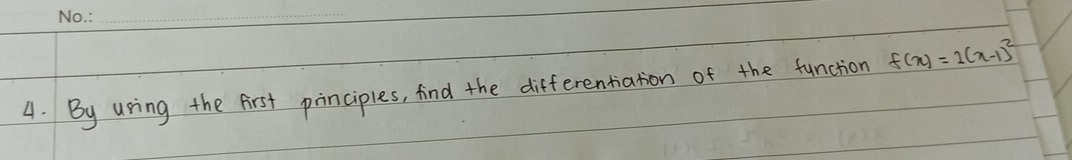 No.:
4. By using the first principles, find the differentiation of the function f(x) = 2(x-1)²